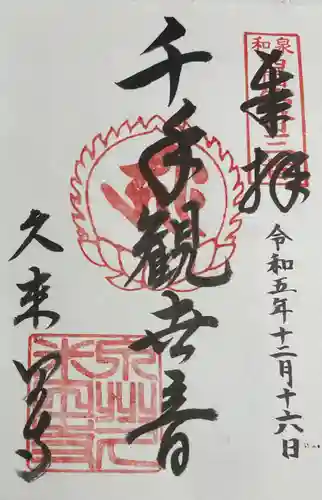 和泉
奉拝
令和五年十二月十六日
千手観世音
久米田寺